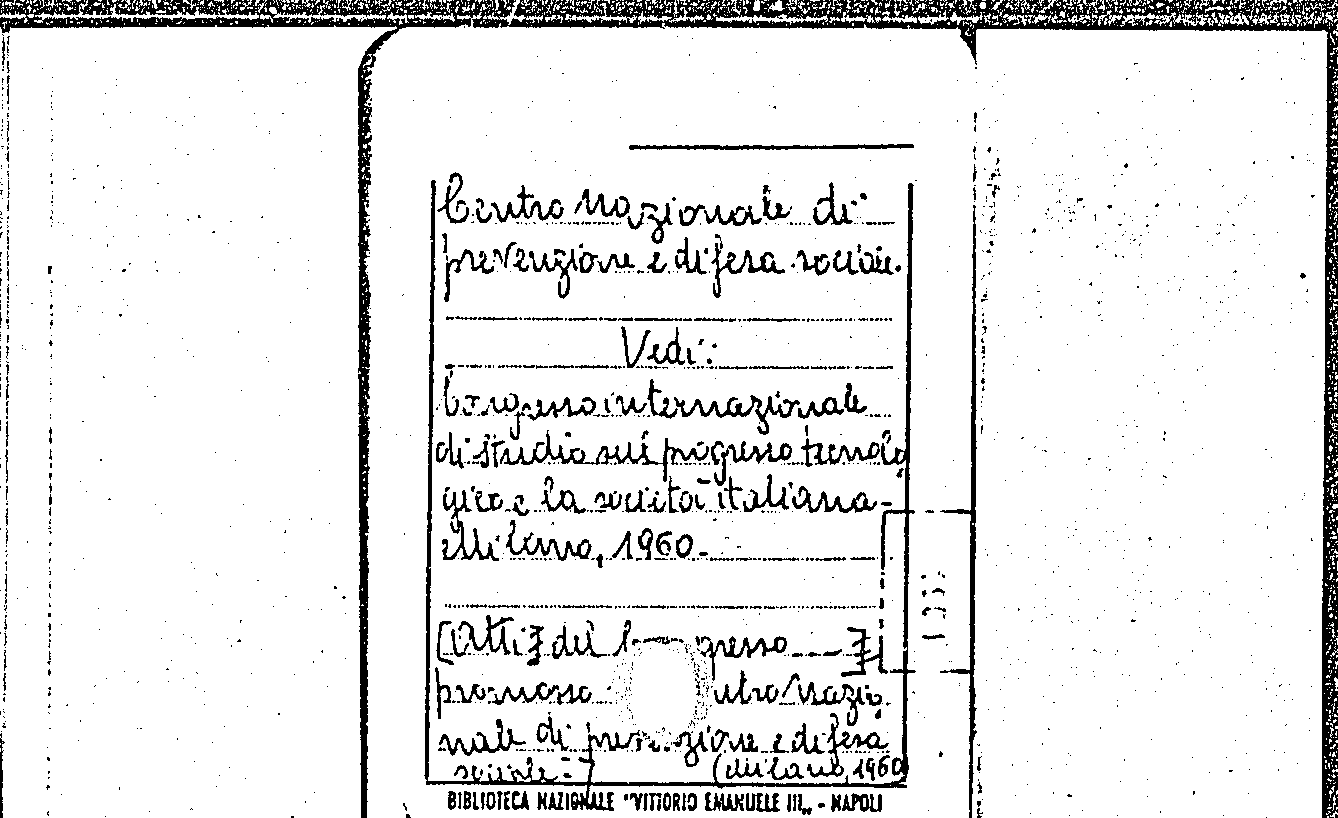 Centro Nazionale di
prevenzione e difesa sociale.
Vedi:
Congresso internazionale
di studio sul progresso tecnolo
gico e la società italiana-
Milano, 1960-
[Atti] del gresso ---]
promosso Nazio
nale di e difesa
sociale-] (Milano, 1960
BIBLIOTECA NAZIONALE "VITTORIO EMANUELE III„ - NAPOLI